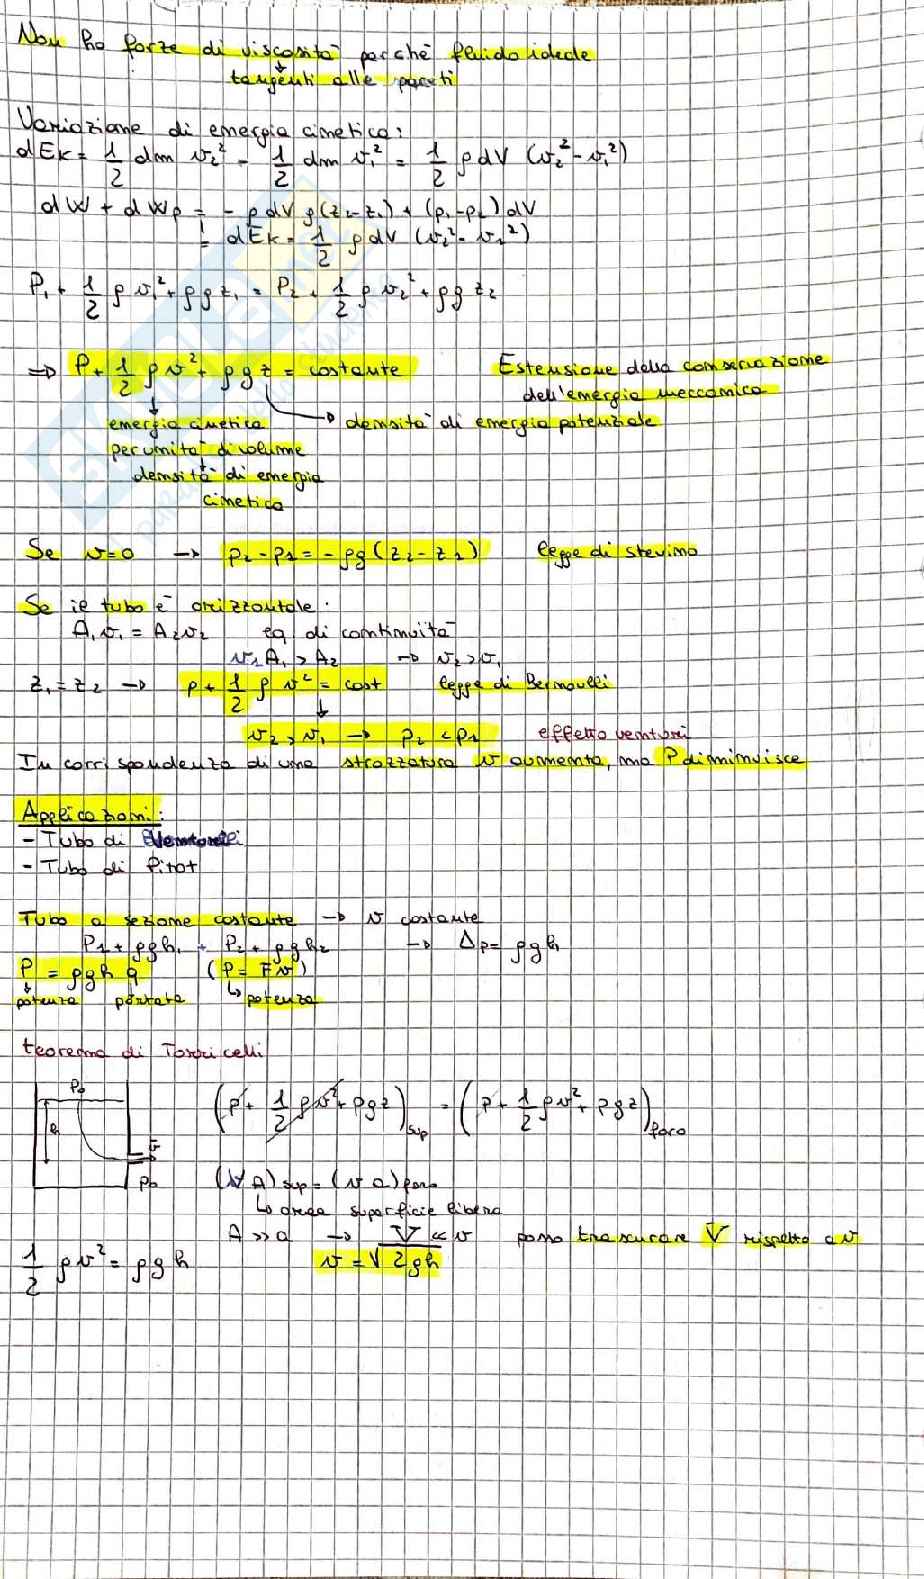 Non ho forze di viscosità perché fluido ideale
tangenti alle pareti
Variazione di energia cinetica:
dEk = 1/2 dm v₂² - 1/2 dm v₁² = 1/2 ρ dV (v₂² - v₁²)
dW + dWp = - ρ dV g (z₂-z₁) + (p₁-p₂) dV
= dEk = 1/2 ρ dV (v₂² - v₁²)
P₁ + 1/2 ρ v₁² + ρ g z₁ = P₂ + 1/2 ρ v₂² + ρ g z₂
⇒ P + 1/2 ρ v² + ρ g z = costante Estensione della conservazione
dell'energia meccanica
energia cinetica → densità di energia potenziale
per unità di volume
densità di energia
cinetica
Se v=0 → p₂ - p₁ = - ρg (z₂ - z₁) legge di stevino
Se il tubo è orizzontale:
A₁v₁ = A₂v₂ eq di continuità
A₁ > A₂ → v₂ > v₁
z₁ = z₂ → p + 1/2 ρ v² = cost legge di Bernoulli
v₂ > v₁ → p₂ < p₁ effetto venturi
In corrispondenza di una strozzatura v aumenta, ma P diminuisce
Applicazioni:
- Tubo di
- Tubo di Pitot
Tubo a sezione costante → v costante
P₁ + ρgh₁ + P₂ + ρgh₂ → Δp = ρgh
P = ρgh q (P = Fv)
potenza portata ↳ potenza
teorema di Torricelli
P₀
(p + 1/2 ρv² + ρgz)sup = (p + 1/2 ρv² + ρgz)foro
h
v
P₀
(V A)sup = (v a)foro
↳ area superficie libera
A >> a → V << v posso trascurare V rispetto a v
1/2 ρv² = ρgh v = √2gh